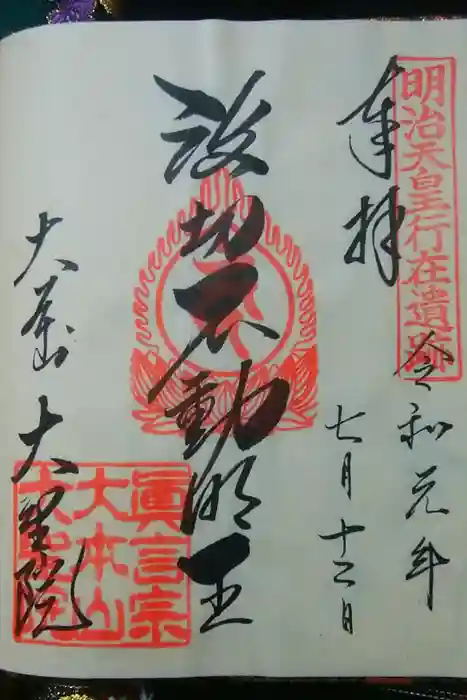 明治天皇行在遺跡
奉拝
令和元年
七月十二日
波切不動明王
大本山 大聖院
眞言宗
大本山
大聖院